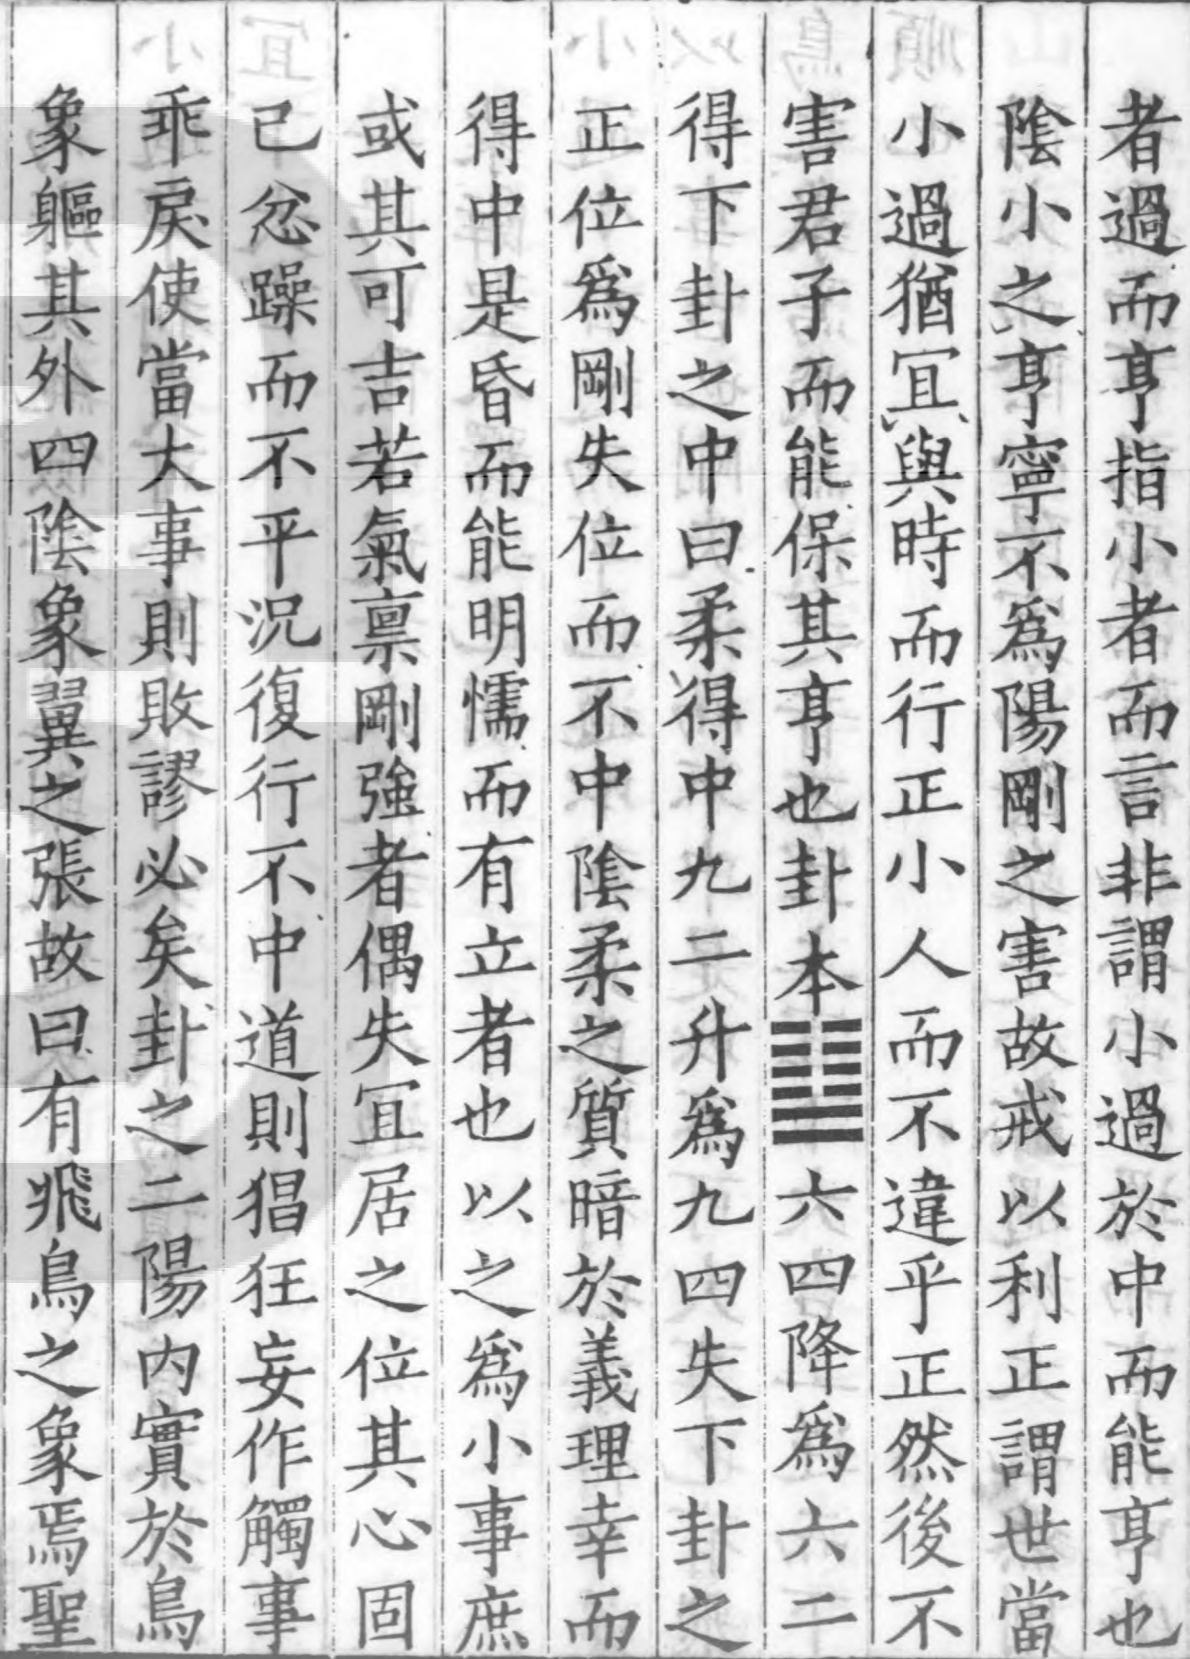 者過而亨指小者而言非謂小過於中而能亨也
陰小之亨寧不爲陽剛之害故戒以利正謂世當
小過猶冝與時而行正小人而不違乎正然後不
害君子而能保其亨也卦本䷒六四降爲六二
得下卦之中曰柔得中九二升爲九四失下卦之
正位爲剛失位而不中陰柔之質暗於義理幸而
得中是昏而能明懦而有立者也以之爲小事庶
或其可吉若氣禀剛強者偶失冝居之位其心固
已忿躁而不平況復行不中道則猖狂妄作觸事
乖戾使當大事則敗謬必矣卦之二陽内實於鳥
象軀其外四陰象翼之張故曰有飛鳥之象焉聖